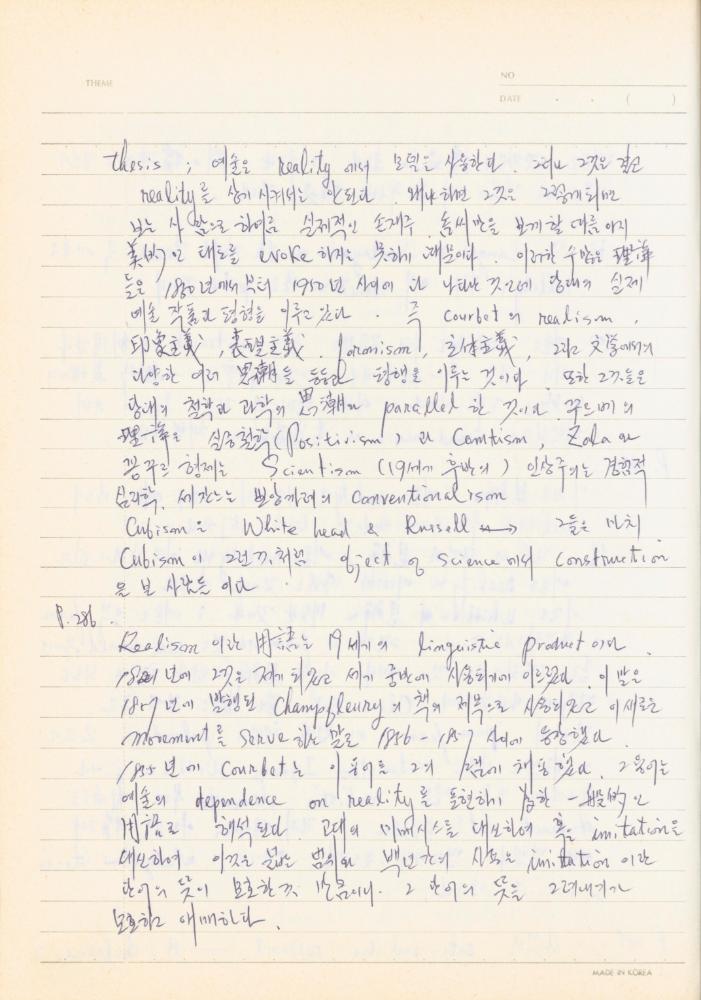 THEME
NO
DATE . . ( )
thesis ; 예술은 reality 에서 모델을 사용한다. 그러나 그것은 결코
reality를 상기시켜서는 안된다. 왜냐하면 그것은 그렇게 되면
보는 사람으로 하여금 실제적인 손재주, 솜씨만을 보게 할 따름이지
美的인 태도를 evoke 하지는 못하기 때문이다. 이러한 수많은 理論
들은 1850년에서부터 1950년 사이에 다 나타난 것인데 당대의 실제
예술 작품과 평형을 이루고 있다. 즉 Courbet의 realism,
印象主義, 表現主義, 立体主義, 그리고 文學에서의
다양한 여러 思潮들 등등과 평행을 이루는 것이다. 또한 그것들은
당대의 철학과 과학의 思潮와 parallel 한 것이다. 꾸르베의
理論은 실증철학(Positivism)과 Comtism, Zola와
꽁꾸르 형제는 Scientism (19세기 후반의) 인상주의는 경험적
심리학, 세잔느는 뽀앙까레의 Conventionalism
Cubism은 White head & Russell ↔ 그들은 마치
Cubism이 그런 것처럼 object of science에서 construction
을 본 사람들이다.
P. 286.
Realism 이란 用語는 19세기의 linguistic product이다.
년에 그것은 세기 중반에 사용되기에 이르렀다. 이 말은
1857년에 발행된 Champfleury의 책의 제목으로 사용되었고 이 새로운
movement를 serve 하는 말로 1856-1857 사이에 등장했다.
1855년에 Courbet는 이 용어를 그의 채용했다. 그 용어는
예술의 dependence on reality를 표현하기 위한 一般的인
用語로 해석된다. 고대의 미메시스를 대신하여 혹은 imitation을
대신하여 이것은 넓은 범위와 백년간의 사용은 imitation 이란
단어의 뜻이 모호한 것 만큼이나 그 단어의 뜻을
모호하고 애매하다.
MADE IN KOREA